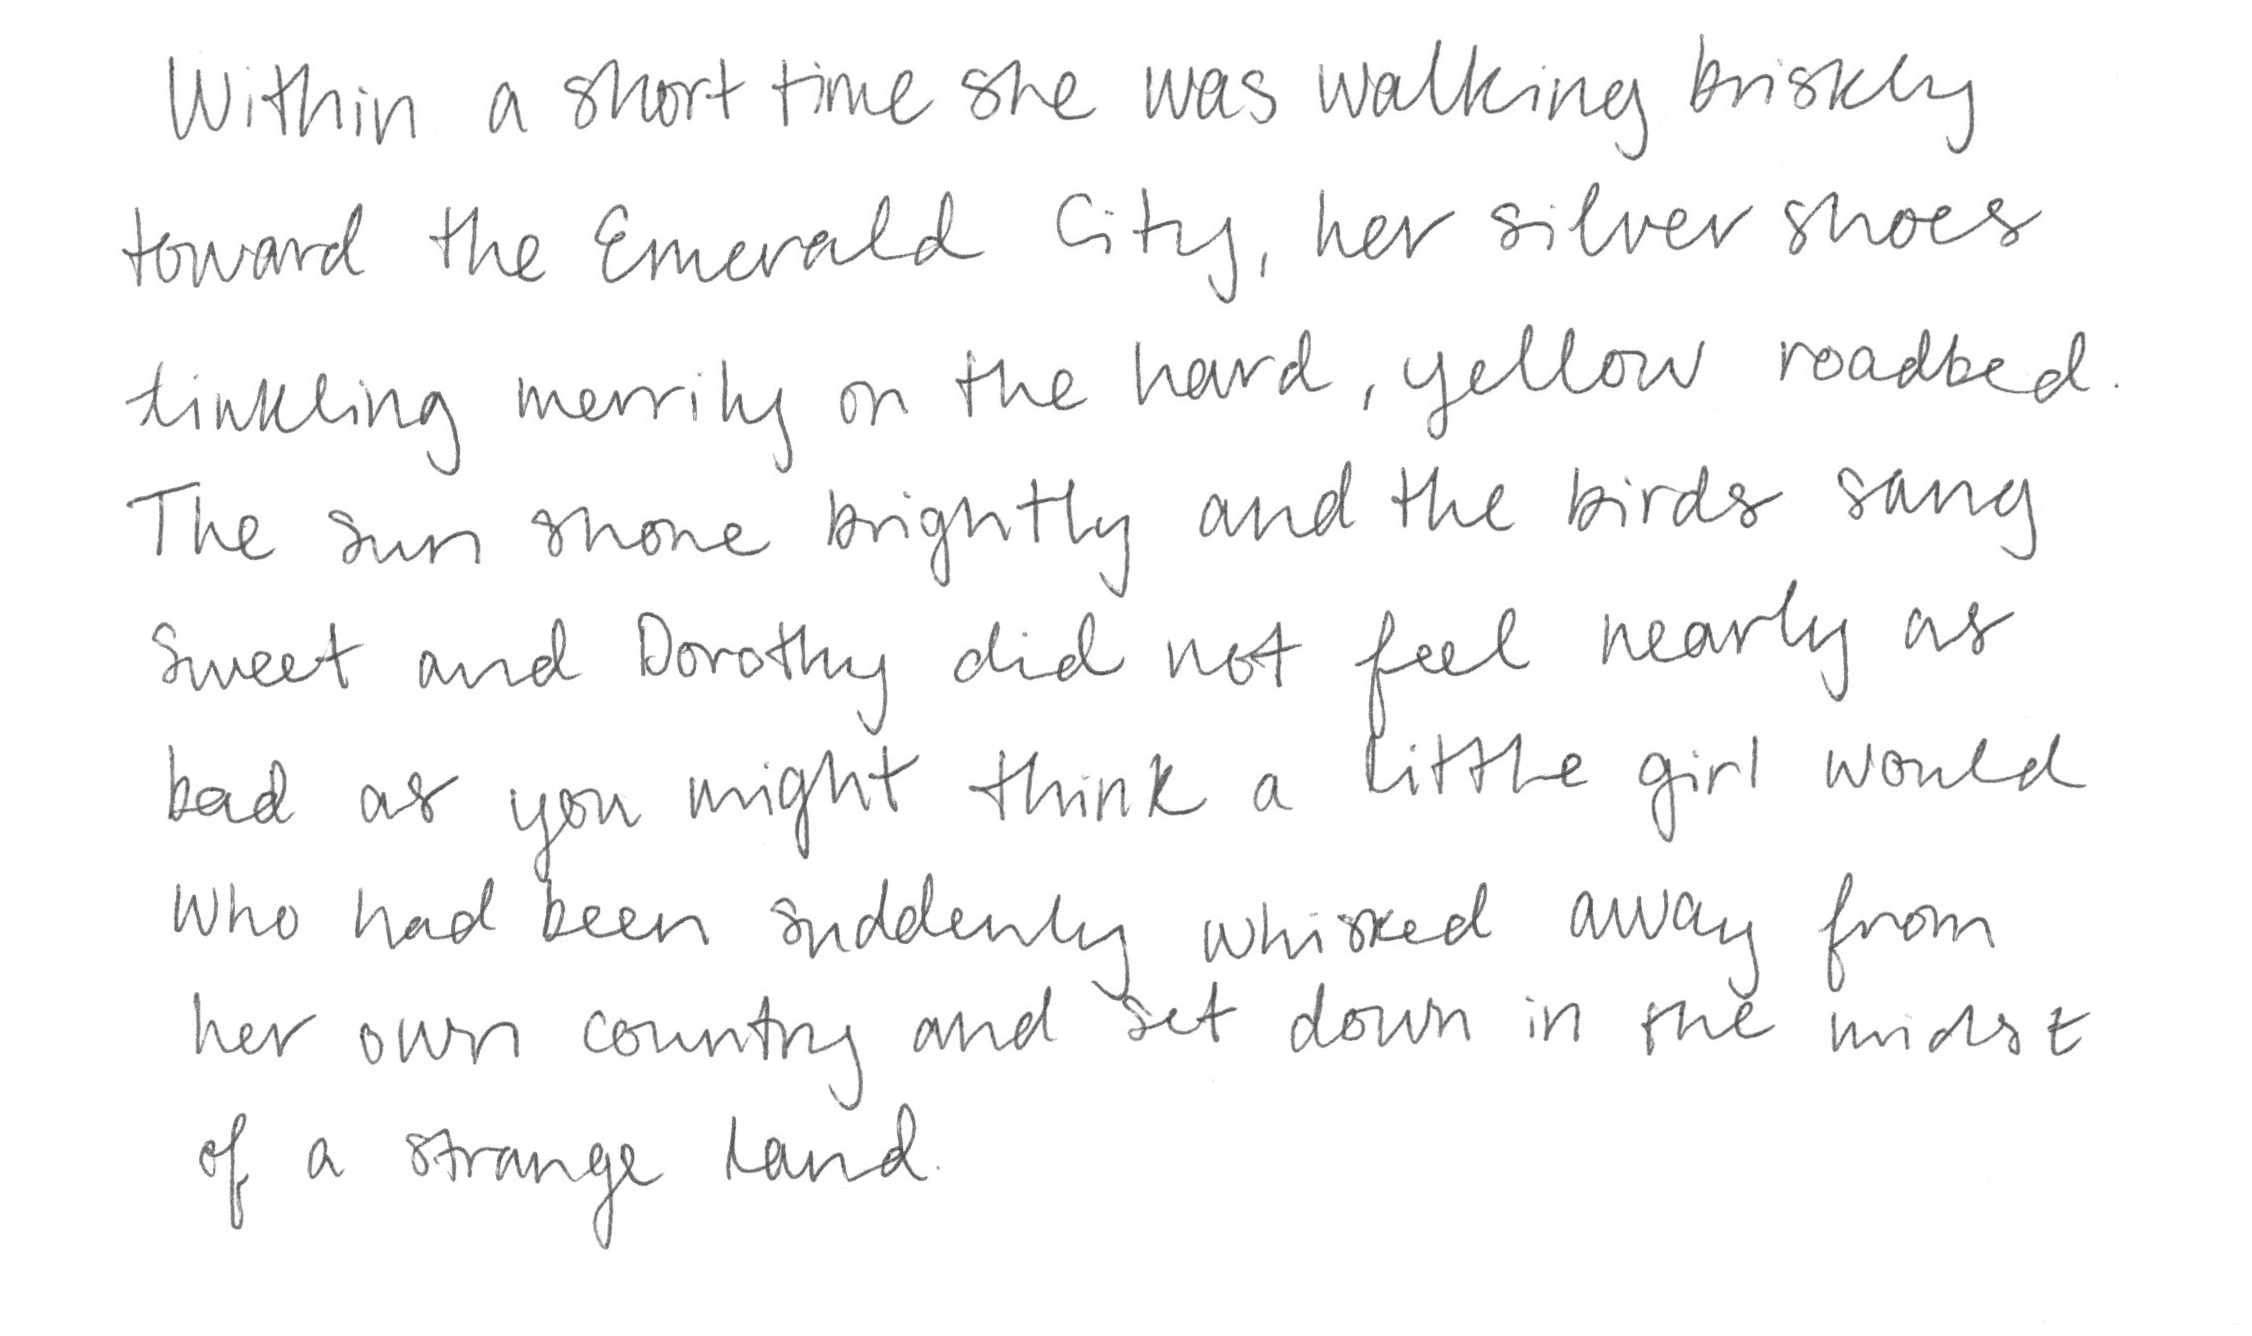 Within a short time she was walking briskly
toward the Emerald City, her silver shoes
tinkling merrily on the hard, yellow roadbed.
The sun shone brightly and the birds sang
sweet and Dorothy did not feel nearly as
bad as you might think a little girl would
who had been suddenly whisked away from
her own country and set down in the midst
of a strange land.